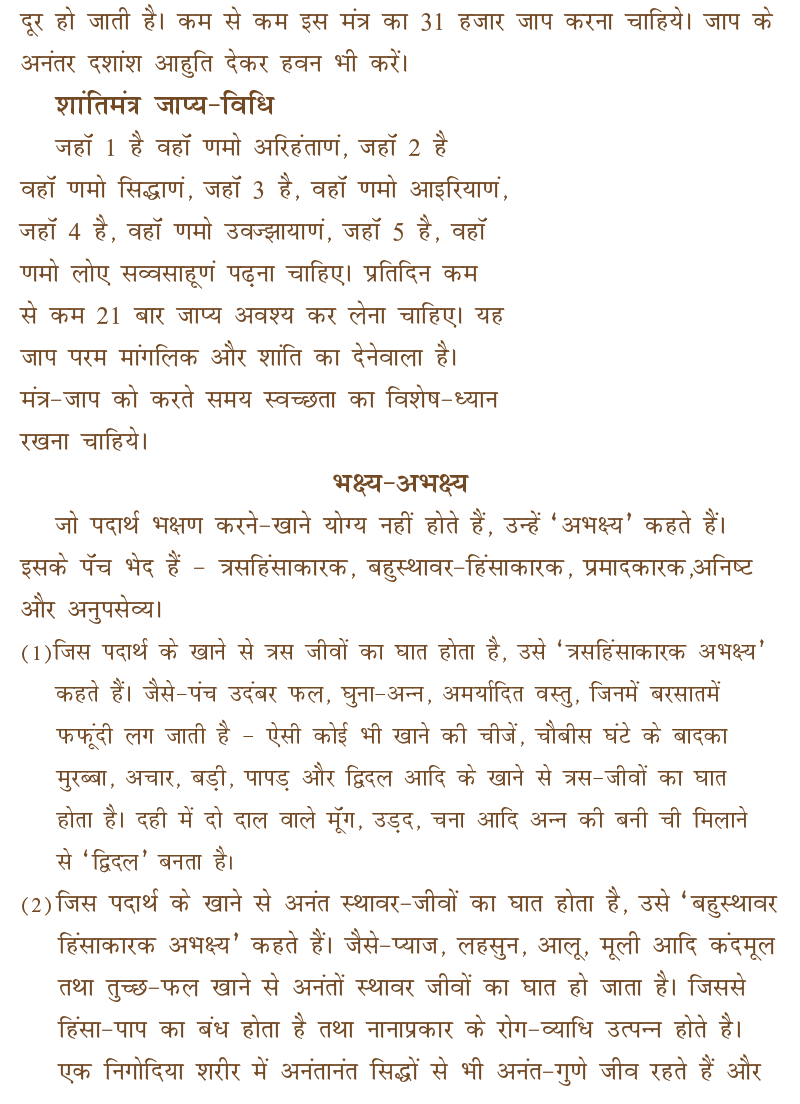 दूर हो जाती है। कम से कम इस मंत्र का 31 हजार जाप करना चाहिये। जाप के
अनंतर दशांश आहुति देकर हवन भी करें।
शांतिमंत्र जाप्य-विधि
जहॉ 1 है वहॉ णमो अरिहंताणं, जहॉ 2 है
वहॉ णमो सिद्धाणं, जहॉ 3 है, वहॉ णमो आइरियाणं,
जहॉ 4 है, वहॉ णमो उवज्झायाणं, जहॉ 5 है, वहॉ
णमो लोए सव्वसाहूणं पढ़ना चाहिए। प्रतिदिन कम
से कम 21 बार जाप्य अवश्य कर लेना चाहिए। यह
जाप परम मांगलिक और शांति का देनेवाला है।
मंत्र-जाप को करते समय स्वच्छता का विशेष-ध्यान
रखना चाहिये।
भक्ष्य-अभक्ष्य
जो पदार्थ भक्षण करने-खाने योग्य नहीं होते हैं, उन्हें ‘अभक्ष्य’ कहते हैं।
इसके पॅच भेद हैं - त्रसहिंसाकारक, बहुस्थावर-हिंसाकारक, प्रमादकारक,अनिष्ट
और अनुपसेव्य।
(1)जिस पदार्थ के खाने से त्रस जीवों का घात होता है, उसे ‘त्रसहिंसाकारक अभक्ष्य’
कहते हैं। जैसे-पंच उदंबर फल, घुना-अन्न, अमर्यादित वस्तु, जिनमें बरसातमें
फफूंदी लग जाती है - ऐसी कोई भी खाने की चीजें, चौबीस घंटे के बादका
मुरब्बा, अचार, बड़ी, पापड़ और द्विदल आदि के खाने से त्रस-जीवों का घात
होता है। दही में दो दाल वाले मूॅग, उड़द, चना आदि अन्न की बनी ची मिलाने
से ‘द्विदल’ बनता है।
(2)जिस पदार्थ के खाने से अनंत स्थावर-जीवों का घात होता है, उसे ‘बहुस्थावर
हिंसाकारक अभक्ष्य’ कहते हैं। जैसे-प्याज, लहसुन, आलू, मूली आदि कंदमूल
तथा तुच्छ-फल खाने से अनंतों स्थावर जीवों का घात हो जाता है। जिससे
हिंसा-पाप का बंध होता है तथा नानाप्रकार के रोग-व्याधि उत्पन्न होते है।
एक निगोदिया शरीर में अनंतानंत सिद्धों से भी अनंत-गुणे जीव रहते हैं और